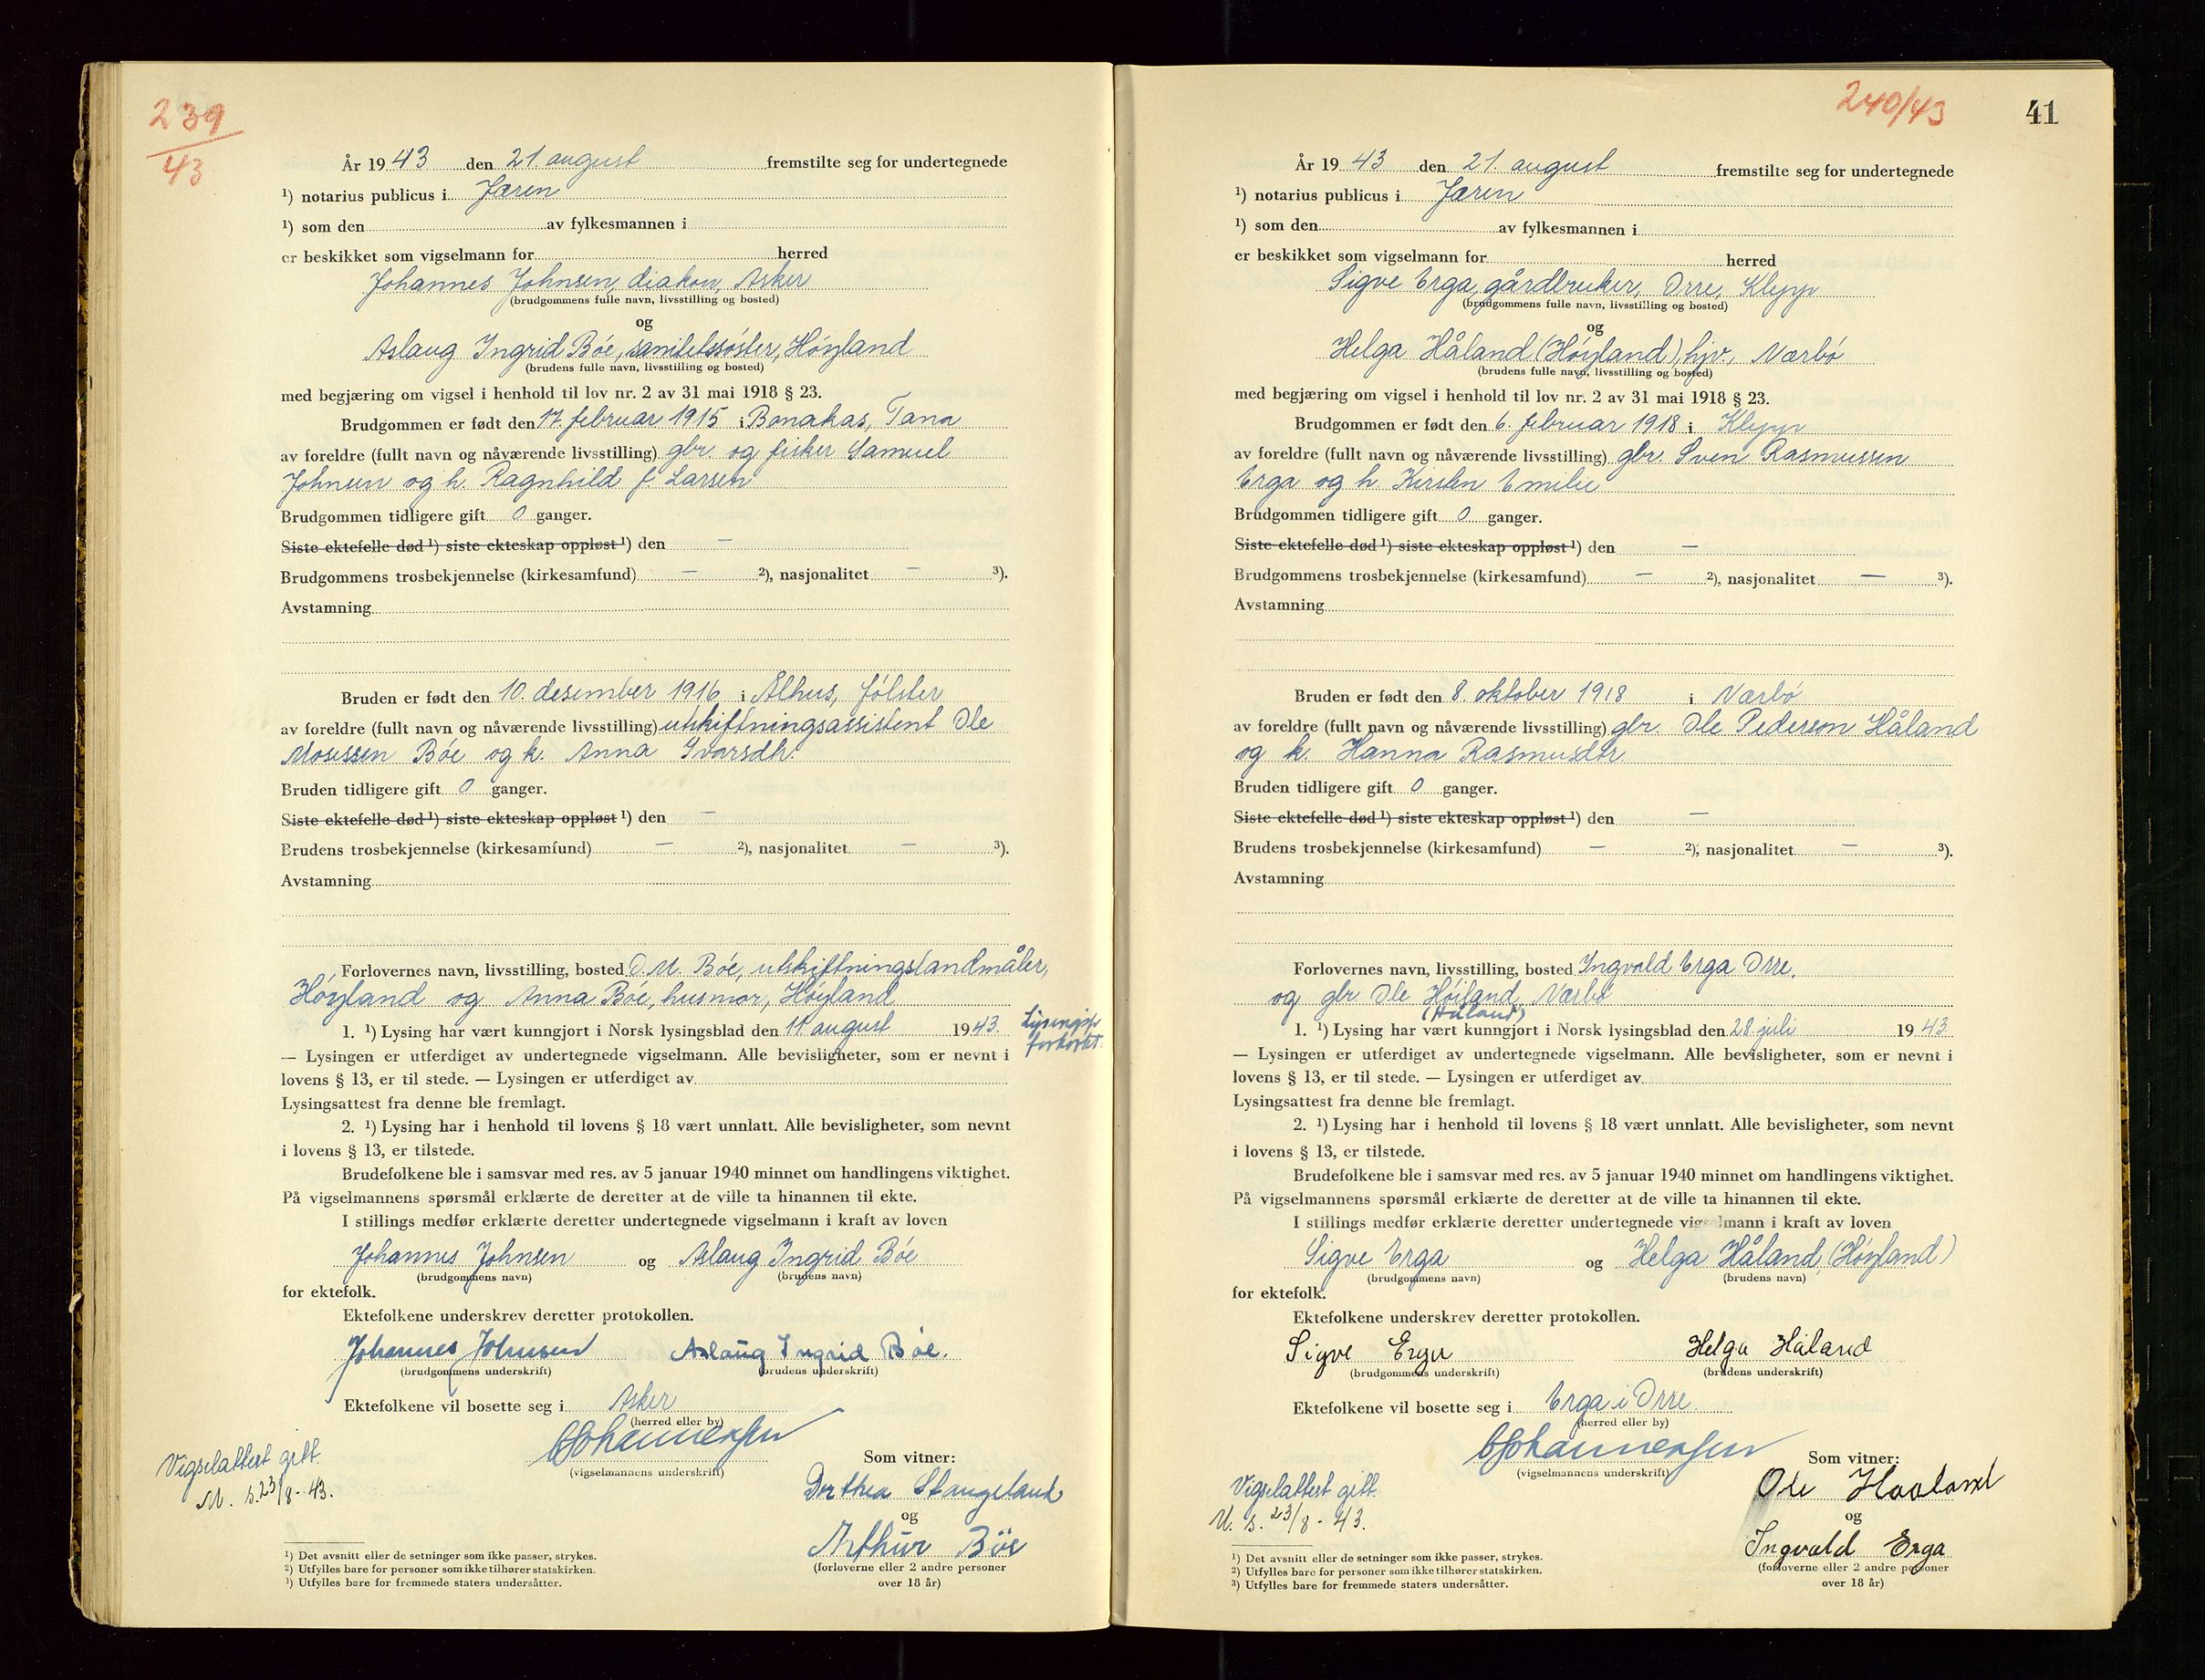 239
43
År 1943 den 21. august fremstilte seg for undertegnede
¹) notarius publicus i Jæren
¹) som den av fylkesmannen i
er beskikket som vigselmann for herred
Johannes Johnsen, diakon, Asker
(brudgommens fulle navn, livsstilling og bosted)
og
Aslaug Ingrid Bóe, sanitetssóster, Hóyland
(brudens fulle navn, livsstilling og bosted)
med begjæring om vigsel i henhold til lov nr. 2 av 31 mai 1918 § 23.
Brudgommen er født den 17. februar 1915 i Bonakas, Tana
av foreldre (fullt navn og nåværende livsstilling) gbr. og fisker Samuel
Johnsen og h. Ragnhild f. Larsen
Brudgommen tidligere gift 0 ganger.
Siste ektefelle død ¹) siste ekteskap oppløst ¹) den –
Brudgommens trosbekjennelse (kirkesamfund) – ²), nasjonalitet – ³).
Avstamning
Bruden er født den 10. desember 1916 i Ålhus, Jólster
av foreldre (fullt navn og nåværende livsstilling) utskiftningsassistent Ole
Mosessen Bóe og h. Anna Ivarsdtr.
Bruden tidligere gift 0 ganger.
Siste ektefelle død ¹) siste ekteskap oppløst ¹) den –
Brudens trosbekjennelse (kirkesamfund) – ²), nasjonalitet – ³).
Avstamning
Forlovernes navn, livsstilling, bosted O. M. Bóe, utskiftningslandmåler,
Hóyland og Anna Bóe, husmor, Hóyland
1. ¹) Lysing har vært kunngjort i Norsk lysingsblad den 11. august 1943. Lysingsfr. forkortet.
— Lysingen er utferdiget av undertegnede vigselmann. Alle bevisligheter, som er nevnt i
lovens § 13, er til stede. — Lysingen er utferdiget av
Lysingsattest fra denne ble fremlagt.
2. ¹) Lysing har i henhold til lovens § 18 vært unnlatt. Alle bevisligheter, som nevnt
i lovens § 13, er tilstede.
Brudefolkene ble i samsvar med res. av 5 januar 1940 minnet om handlingens viktighet.
På vigselmannens spørsmål erklærte de deretter at de ville ta hinannen til ekte.
I stillings medfør erklærte deretter undertegnede vigselmann i kraft av loven
Johannes Johnsen og Aslaug Ingrid Bóe
(brudgommens navn) (brudens navn)
for ektefolk.
Ektefolkene underskrev deretter protokollen.
Johannes Johnsen Aslaug Ingrid Bøe.
(brudgommens underskrift) (brudens underskrift)
Ektefolkene vil bosette seg i Asker
(herred eller by)
CJohannessen
(vigselmannens underskrift)
Vigselattest gitt.
M. s. 23/8 - 43.
Som vitner:
Dorthea Stangeland
og
Arthur Böe
(forloverne eller 2 andre personer
over 18 år)
¹) Det avsnitt eller de setninger som ikke passer, strykes.
²) Utfylles bare for personer som ikke tilhører statskirken.
³) Utfylles bare for fremmede staters undersåtter.
240/43
41
År 1943 den 21. august fremstilte seg for undertegnede
¹) notarius publicus i Jæren
¹) som den av fylkesmannen i
er beskikket som vigselmann for herred
Sigve Erga, gårdbruker, Orre, Klepp
(brudgommens fulle navn, livsstilling og bosted)
og
Helga Håland (Hóyland), hjv., Nærbó
(brudens fulle navn, livsstilling og bosted)
med begjæring om vigsel i henhold til lov nr. 2 av 31 mai 1918 § 23.
Brudgommen er født den 6. februar 1918 i Klepp
av foreldre (fullt navn og nåværende livsstilling) gbr. Sven Rasmussen
Erga og h. Kirsten Emilie
Brudgommen tidligere gift 0 ganger.
Siste ektefelle død ¹) siste ekteskap oppløst ¹) den –
Brudgommens trosbekjennelse (kirkesamfund) – ²), nasjonalitet – ³).
Avstamning
Bruden er født den 8. oktober 1918 i Nærbó
av foreldre (fullt navn og nåværende livsstilling) gbr. Ole Pederson Håland
og h. Hanna Rasmusdtr.
Bruden tidligere gift 0 ganger.
Siste ektefelle død ¹) siste ekteskap oppløst ¹) den –
Brudens trosbekjennelse (kirkesamfund) – ²), nasjonalitet – ³).
Avstamning
Forlovernes navn, livsstilling, bosted Ingvald Erga Orre,
og gbr. Ole Hóiland, Nærbó
(Håland)
1. ¹) Lysing har vært kunngjort i Norsk lysingsblad den 28. juli 1943.
— Lysingen er utferdiget av undertegnede vigselmann. Alle bevisligheter, som er nevnt i
lovens § 13, er til stede. — Lysingen er utferdiget av
Lysingsattest fra denne ble fremlagt.
2. ¹) Lysing har i henhold til lovens § 18 vært unnlatt. Alle bevisligheter, som nevnt
i lovens § 13, er tilstede.
Brudefolkene ble i samsvar med res. av 5 januar 1940 minnet om handlingens viktighet.
På vigselmannens spørsmål erklærte de deretter at de ville ta hinannen til ekte.
I stillings medfør erklærte deretter undertegnede vigselmann i kraft av loven
Sigve Erga og Helga Håland, (Hóyland)
(brudgommens navn) (brudens navn)
for ektefolk.
Ektefolkene underskrev deretter protokollen.
Sigve Erga Helga Håland
(brudgommens underskrift) (brudens underskrift)
Ektefolkene vil bosette seg i Erga i Orre.
(herred eller by)
CJohannessen
(vigselmannens underskrift)
Vigselattest gitt.
M. s. 23/8 - 43.
Som vitner:
Ole Haaland
og
Ingvald Erga
(forloverne eller 2 andre personer
over 18 år)
¹) Det avsnitt eller de setninger som ikke passer, strykes.
²) Utfylles bare for personer som ikke tilhører statskirken.
³) Utfylles bare for fremmede staters undersåtter.